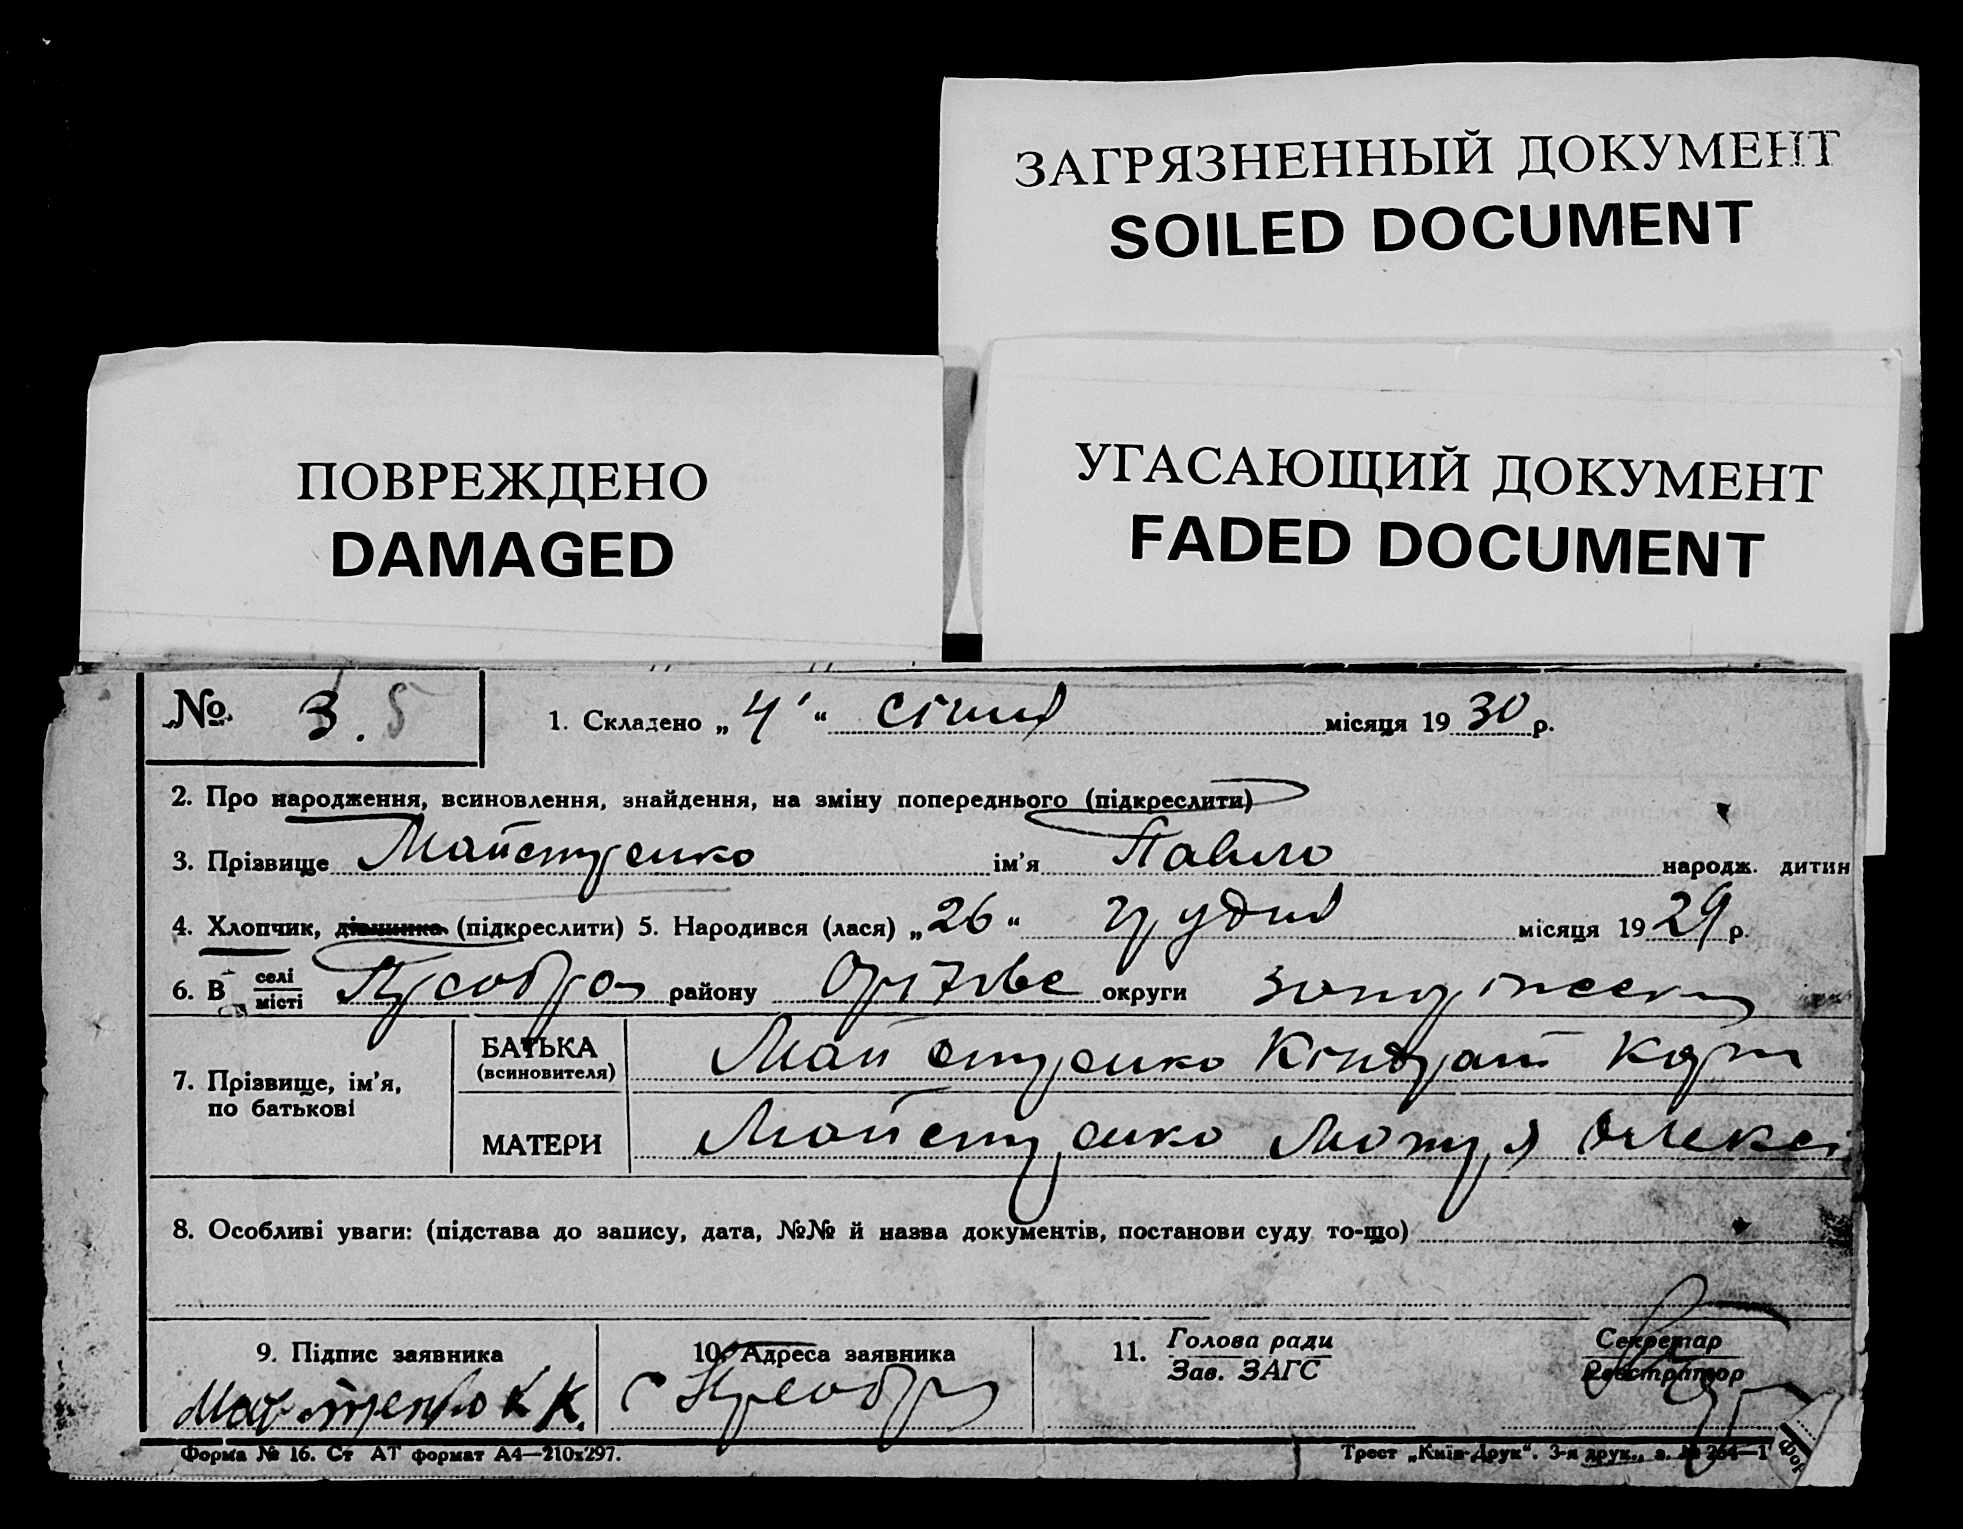 ЗАГРЯЗНЕННЫЙ ДОКУМЕНТ
SOILED DOCUMENT
ПОВРЕЖДЕНО
DAMAGED
УГАСАЮЩИЙ ДОКУМЕНТ
FADED DOCUMENT
№ 3. 5
1. Складено „4“ січня місяця 1930 р.
2. Про народження, всиновлення, знайдення, на зміну попереднього (підкреслити)
3. Прізвище Майстренко ім'я Павло народж. дитин
4. Хлопчик, дівчинка (підкреслити) 5. Народився (лася) „26“ грудня місяця 1929 р.
6. В селі місті Преобра району Оріхове округи Запоріжеськ
7. Прізвище, ім'я, по батькові
БАТЬКА (всиновителя) Майстренко Кіндрат
МАТЕРИ Майстренко Мотря Олексі
8. Особливі уваги: (підстава до запису, дата, №№ й назва документів, постанови суду то-що)
9. Підпис заявника
К К.
10. Адреса заявника
с Преобра
11. Голова ради
Зав. ЗАГС
Секретар
Реєстратор
Форма № 16. Ст АТ формат А4—210x297.
Трест „Київ-Друк“. 3-я друк., з. № 264—1